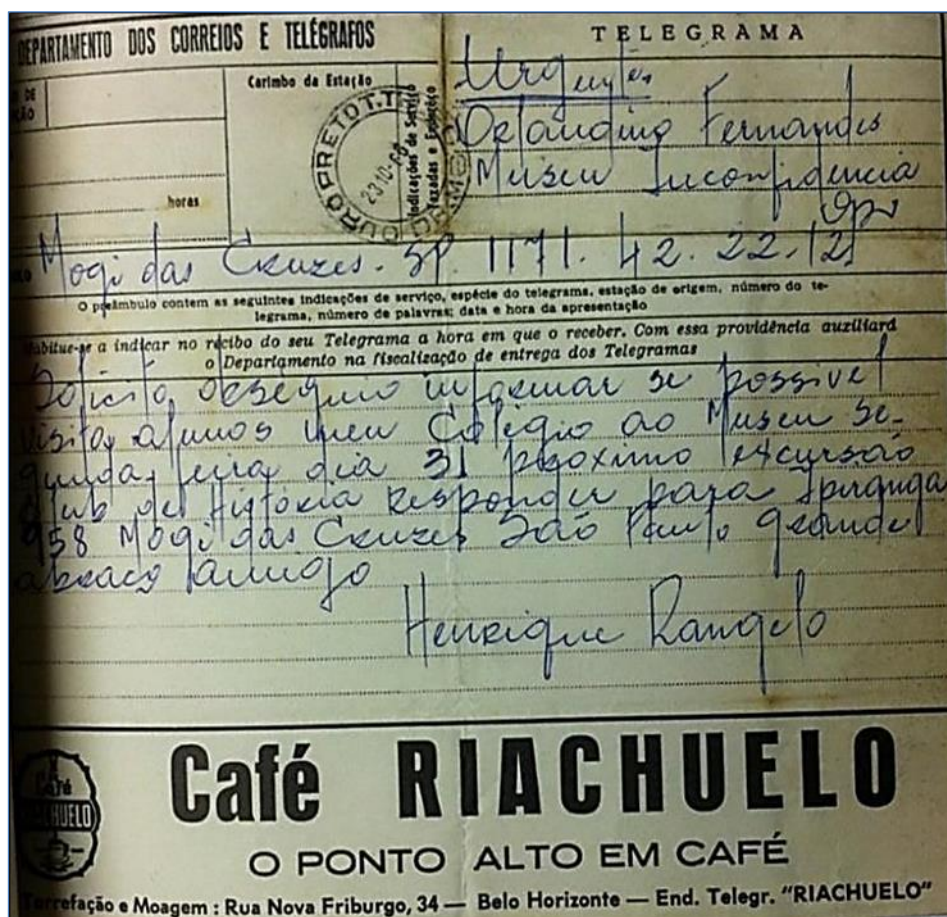 DEPARTAMENTO DOS CORREIOS E TELÉGRAFOS
TELEGRAMA
Carimbo da Estação
Indicações de Serviço
Taxadas e Endereço
OURO PRETO D.T.
23.10.66
horas
Urgente
Orlandino Fernandes
Museu Inconfidencia
Opr
Mogi das Cruzes. SP. 1171. 42. 22. 12
O preâmbulo contem as seguintes indicações de serviço, espécie do telegrama, estação de origem, número do te-
legrama, número de palavras; data e hora da apresentação
Habitue-se a indicar no recibo do seu Telegrama a hora em que o receber. Com essa providência auxiliará
o Departamento na fiscalização de entrega dos Telegramas
Solicito obséquio informar se possivel
visitar alunos meu Colégio ao Museu se-
gunda feira dia 31 proximo excursão
club de História Responder para Ipiranga
958 Mogi das Cruzes São Paulo grande
abraço amigo
Henrique Rangelo
Café
RIACHUELO
Café RIACHUELO
O PONTO ALTO EM CAFÉ
Torrefação e Moagem : Rua Nova Friburgo, 34 — Belo Horizonte — End. Telegr. "RIACHUELO"